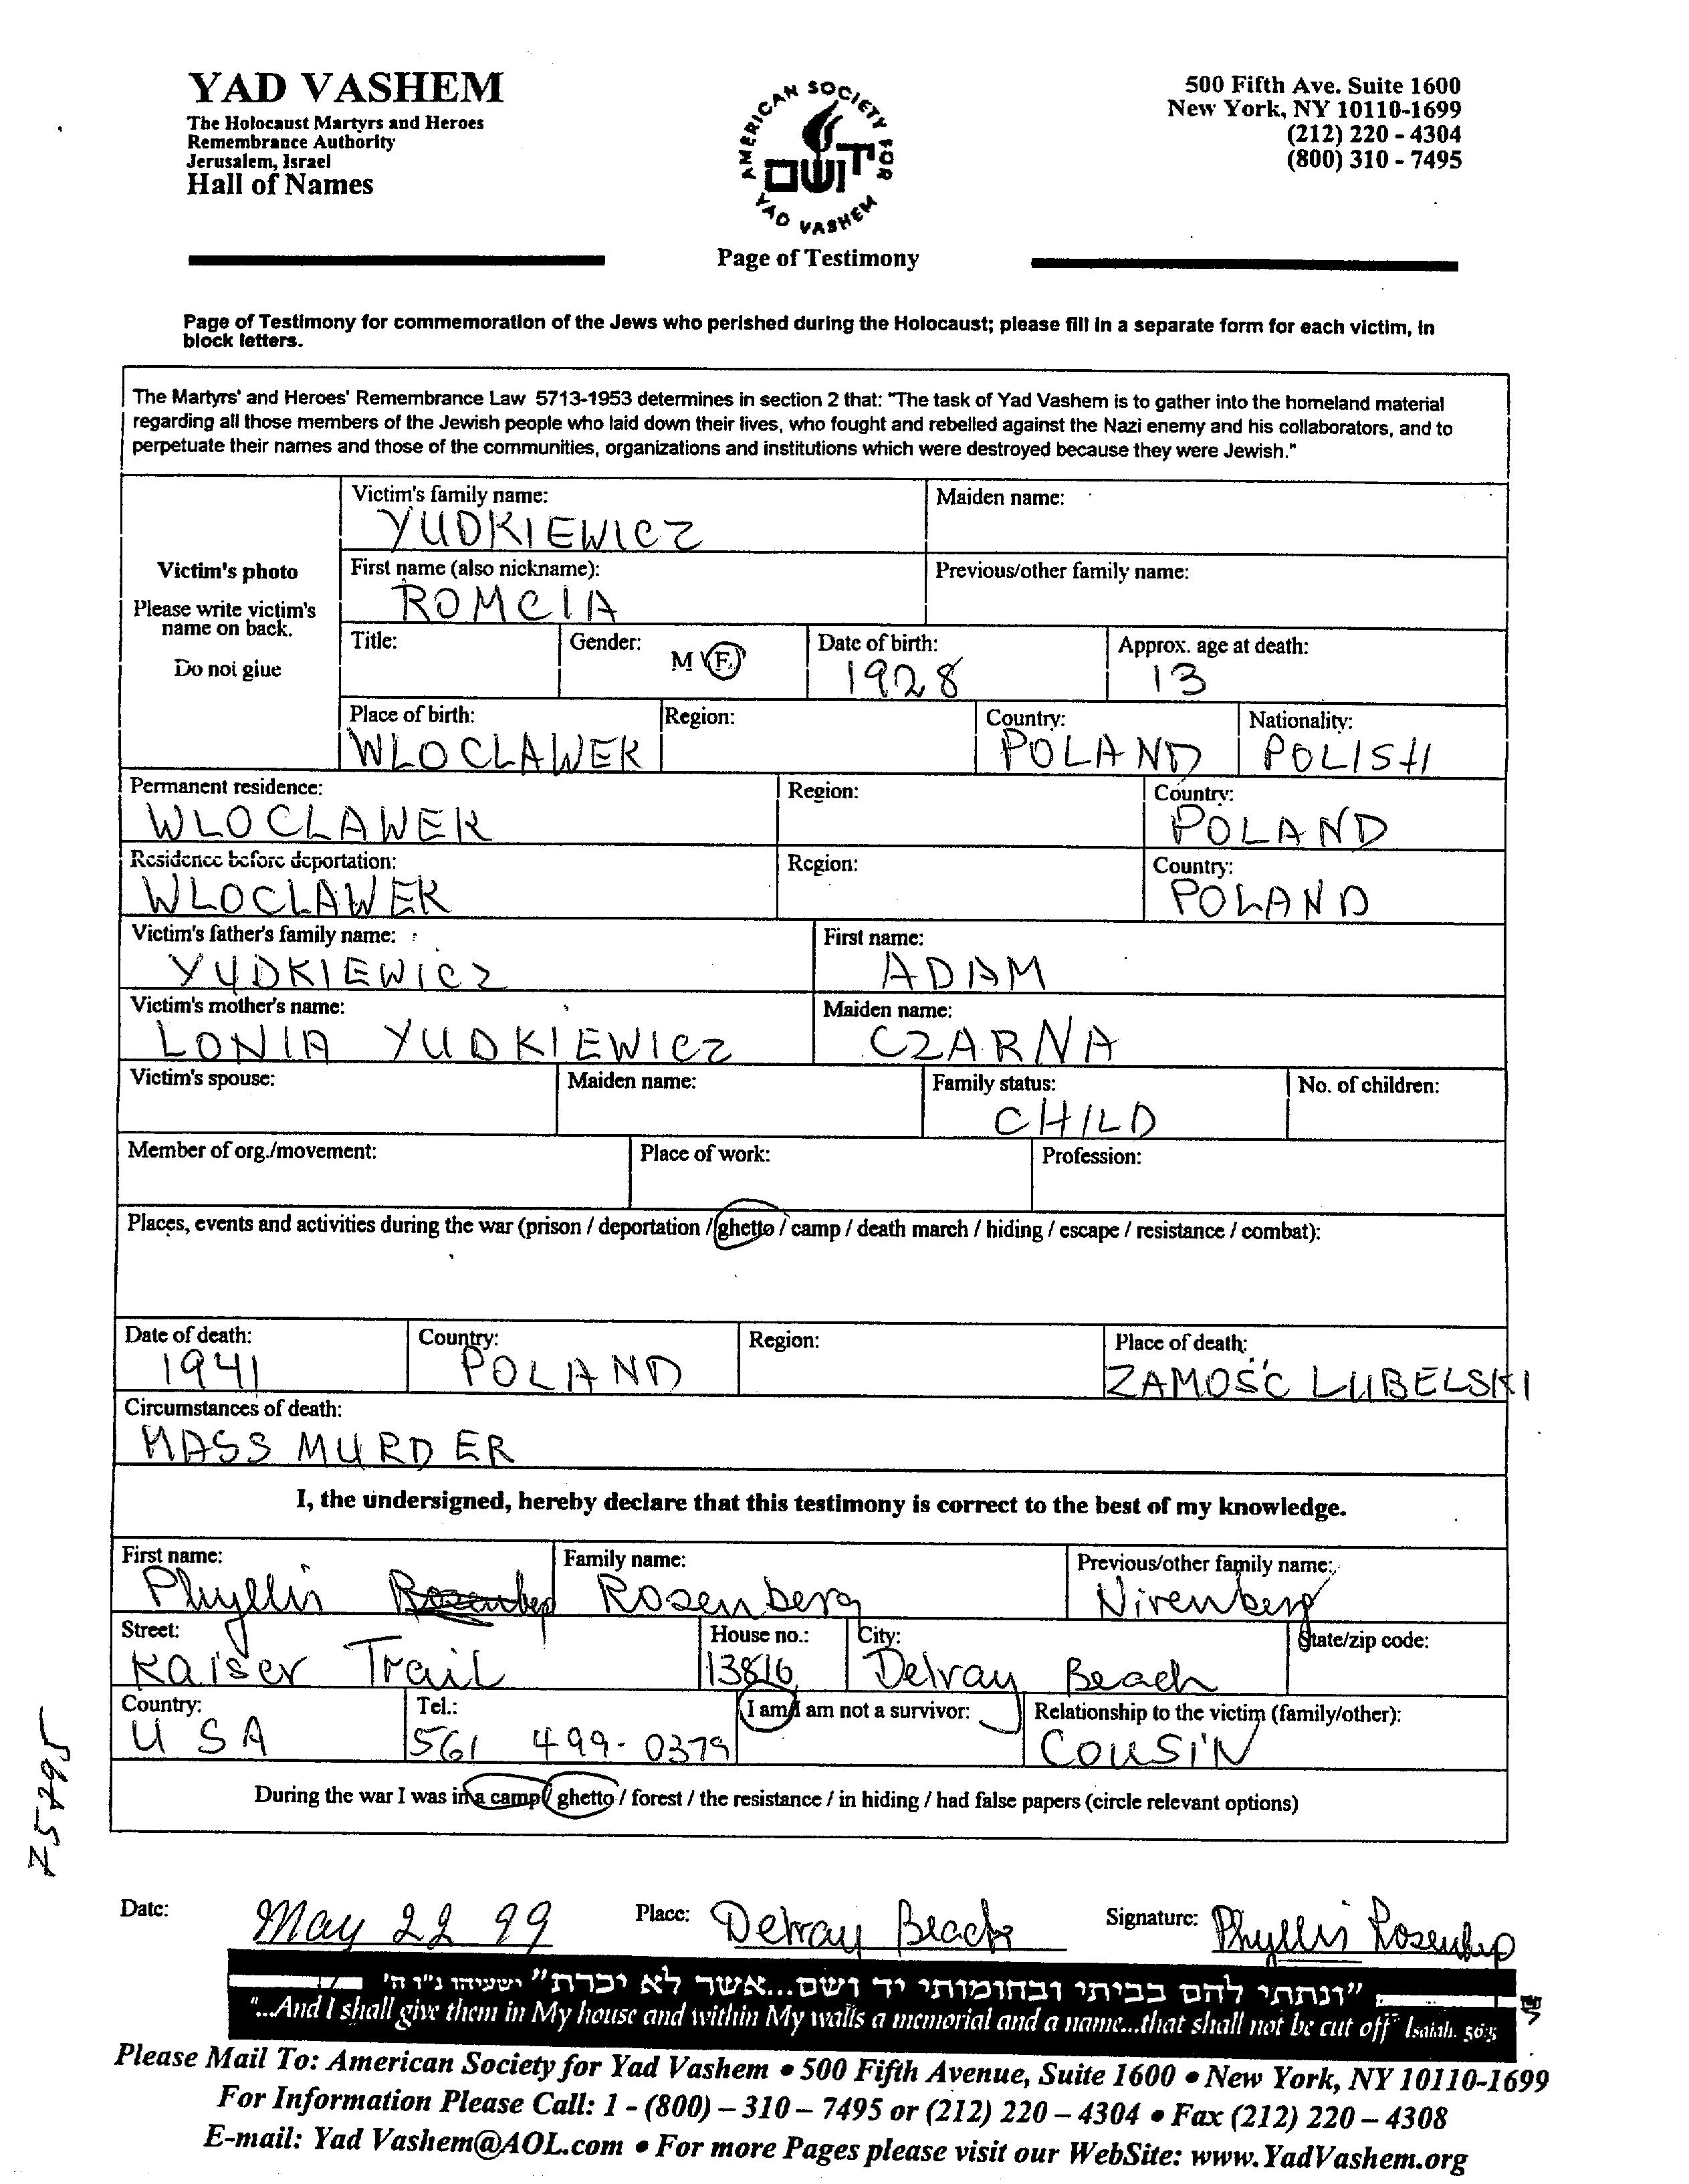 YAD VASHEM
The Holocaust Martyrs and Heroes
Remembrance Authority
Jerusalem, Israel
Hall of Names
AMERICAN SOCIETY FOR
יד ושם
YAD VASHEM
500 Fifth Ave. Suite 1600
New York, NY 10110-1699
(212) 220 - 4304
(800) 310 - 7495
Page of Testimony
Page of Testimony for commemoration of the Jews who perished during the Holocaust; please fill in a separate form for each victim, in
block letters.
The Martyrs' and Heroes' Remembrance Law 5713-1953 determines in section 2 that: "The task of Yad Vashem is to gather into the homeland material
regarding all those members of the Jewish people who laid down their lives, who fought and rebelled against the Nazi enemy and his collaborators, and to
perpetuate their names and those of the communities, organizations and institutions which were destroyed because they were Jewish."
Victim's photo
Please write victim's
name on back.
Do not glue
Victim's family name: Maiden name:
YUDKIEWICZ
First name (also nickname): Previous/other family name:
ROMCIA
Title: Gender: M / F Date of birth: Approx. age at death:
1928 13
Place of birth: Region: Country: Nationality:
WLOCLAWEK POLAND POLISH
Permanent residence: Region: Country:
WLOCLAWEK POLAND
Residence before deportation: Region: Country:
WLOCLAWEK POLAND
Victim's father's family name: First name:
YUDKIEWICZ ADAM
Victim's mother's name: Maiden name:
LONIA YUDKIEWICZ CZARNA
Victim's spouse: Maiden name: Family status: No. of children:
CHILD
Member of org./movement: Place of work: Profession:
Places, events and activities during the war (prison / deportation / ghetto / camp / death march / hiding / escape / resistance / combat):
Date of death: Country: Region: Place of death:
1941 POLAND ZAMOŚĆ LUBELSKI
Circumstances of death:
MASS MURDER
I, the undersigned, hereby declare that this testimony is correct to the best of my knowledge.
First name: Family name: Previous/other family name:
Phyllis Rosenberg Nirenberg
Street: House no.: City: State/zip code:
Kaiser Trail 13816 Delray Beach
Country: Tel.: I am / I am not a survivor: Relationship to the victim (family/other):
USA 561 499-0379 COUSIN
During the war I was in a camp / ghetto / forest / the resistance / in hiding / had false papers (circle relevant options)
Date: May 22 99 Place: Delray Beach Signature: Phyllis Rosenberg
"ונתתי להם בביתי ובחומותי יד ושם...אשר לא יכרת" ישעיהו נ"ו ה'
"...And I shall give them in My house and within My walls a memorial and a name...that shall not be cut off" Isaiah. 56:5
Please Mail To: American Society for Yad Vashem • 500 Fifth Avenue, Suite 1600 • New York, NY 10110-1699
For Information Please Call: 1 - (800) – 310 – 7495 or (212) 220 – 4304 • Fax (212) 220 – 4308
E-mail: Yad Vashem@AOL.com • For more Pages please visit our WebSite: www.YadVashem.org